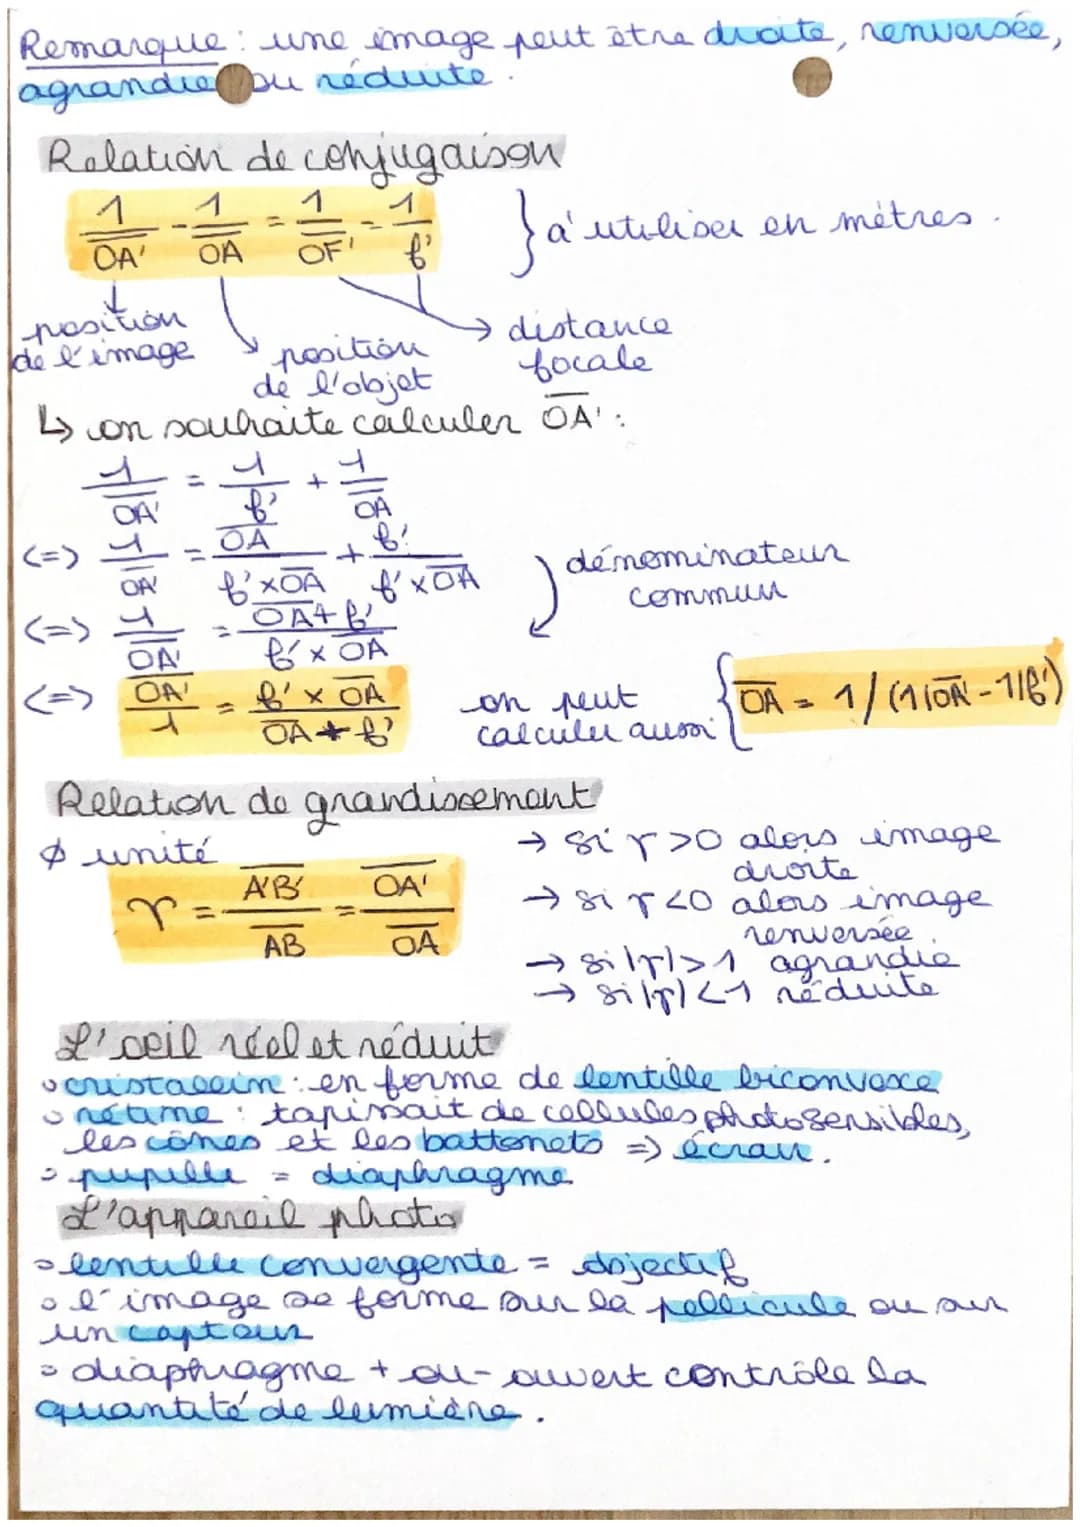 Remarque : une image peut être droite, renversée,
agrandie ou réduite.
Relation de conjugaison
1/OA' - 1/OA = 1/OF' = 1/f' } à utiliser en mètres.
position de l'image
position de l'objet
distance focale
↳ on souhaite calculer OA' :
1/OA' = 1/f' + 1/OA
<=> 1/OA' = OA/(f' × OA) + f'/(f' × OA)
dénominateur
commun
<=> 1/OA' = (OA + f')/(f' × OA)
<=> OA'/1 = (f' × OA)/(OA + f')
on peut
calculer aussi { OA = 1/(1/OA' - 1/f')
Relation de grandissement
∅ unité
γ = A'B'/AB = OA'/OA
→ si γ >0 alors image
droite
→ si γ <0 alors image
renversée.
→ si |γ| > 1 agrandie
→ si |γ| < 1 réduite
L'oeil réel et réduit
◦ cristallin : en forme de lentille biconvexe
◦ rétine : tapissait de cellules photosensibles,
les cônes et les battonets => écran.
◦ pupille = diaphragme
L'appareil photo
◦ lentille convergente = objectif
◦ l'image se forme sur la pellicule ou sur
un capteur
◦ diaphragme + ou - ouvert contrôle la
quantité de lumière.